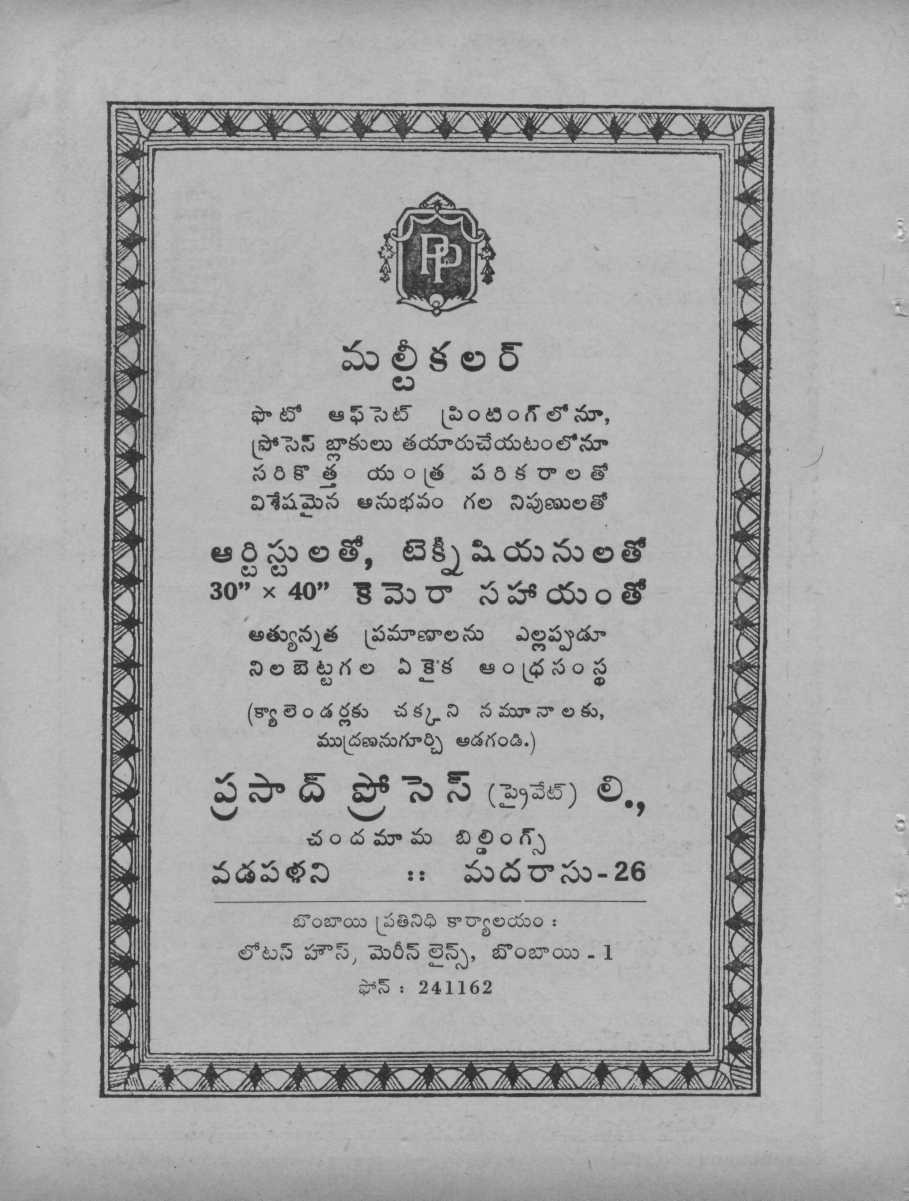 PP
మల్టీకలర్
ఫొటో ఆఫ్‌సెట్ ప్రింటింగ్‌లోనూ,
ప్రోసెస్ బ్లాకులు తయారుచేయటంలోనూ
సరికొత్త యంత్ర పరికరాలతో
విశేషమైన అనుభవం గల నిపుణులతో
ఆర్టిస్టులతో, టెక్నీషియనులతో
30” × 40” కెమెరా సహాయంతో
అత్యున్నత ప్రమాణాలను ఎల్లప్పుడూ
నిలబెట్టగల ఏకైక ఆంధ్రసంస్థ
(క్యాలెండర్లకు చక్కని నమూనాలకు,
ముద్రణనుగూర్చి అడగండి.)
ప్రసాద్ ప్రోసెస్ (ప్రైవేట్) లి.,
చందమామ బిల్డింగ్స్
వడపళని :: మదరాసు-26
బొంబాయి ప్రతినిధి కార్యాలయం :
లోటస్ హౌస్, మెరీన్ లైన్స్, బొంబాయి - 1
ఫోన్ : 241162